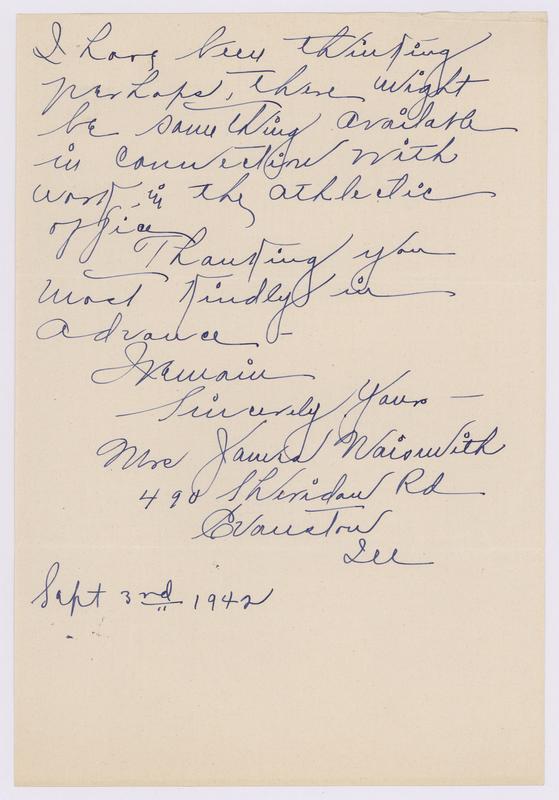 I have been thinking
perhaps, there might
be something available
in connection with
work in the athletic
office
Thanking you
most kindly in
advance -
I remain
Sincerely Yours —
Mrs James Naismith
490 Sheridan Rd
Evanston
Ill
Sept 3rd 1942